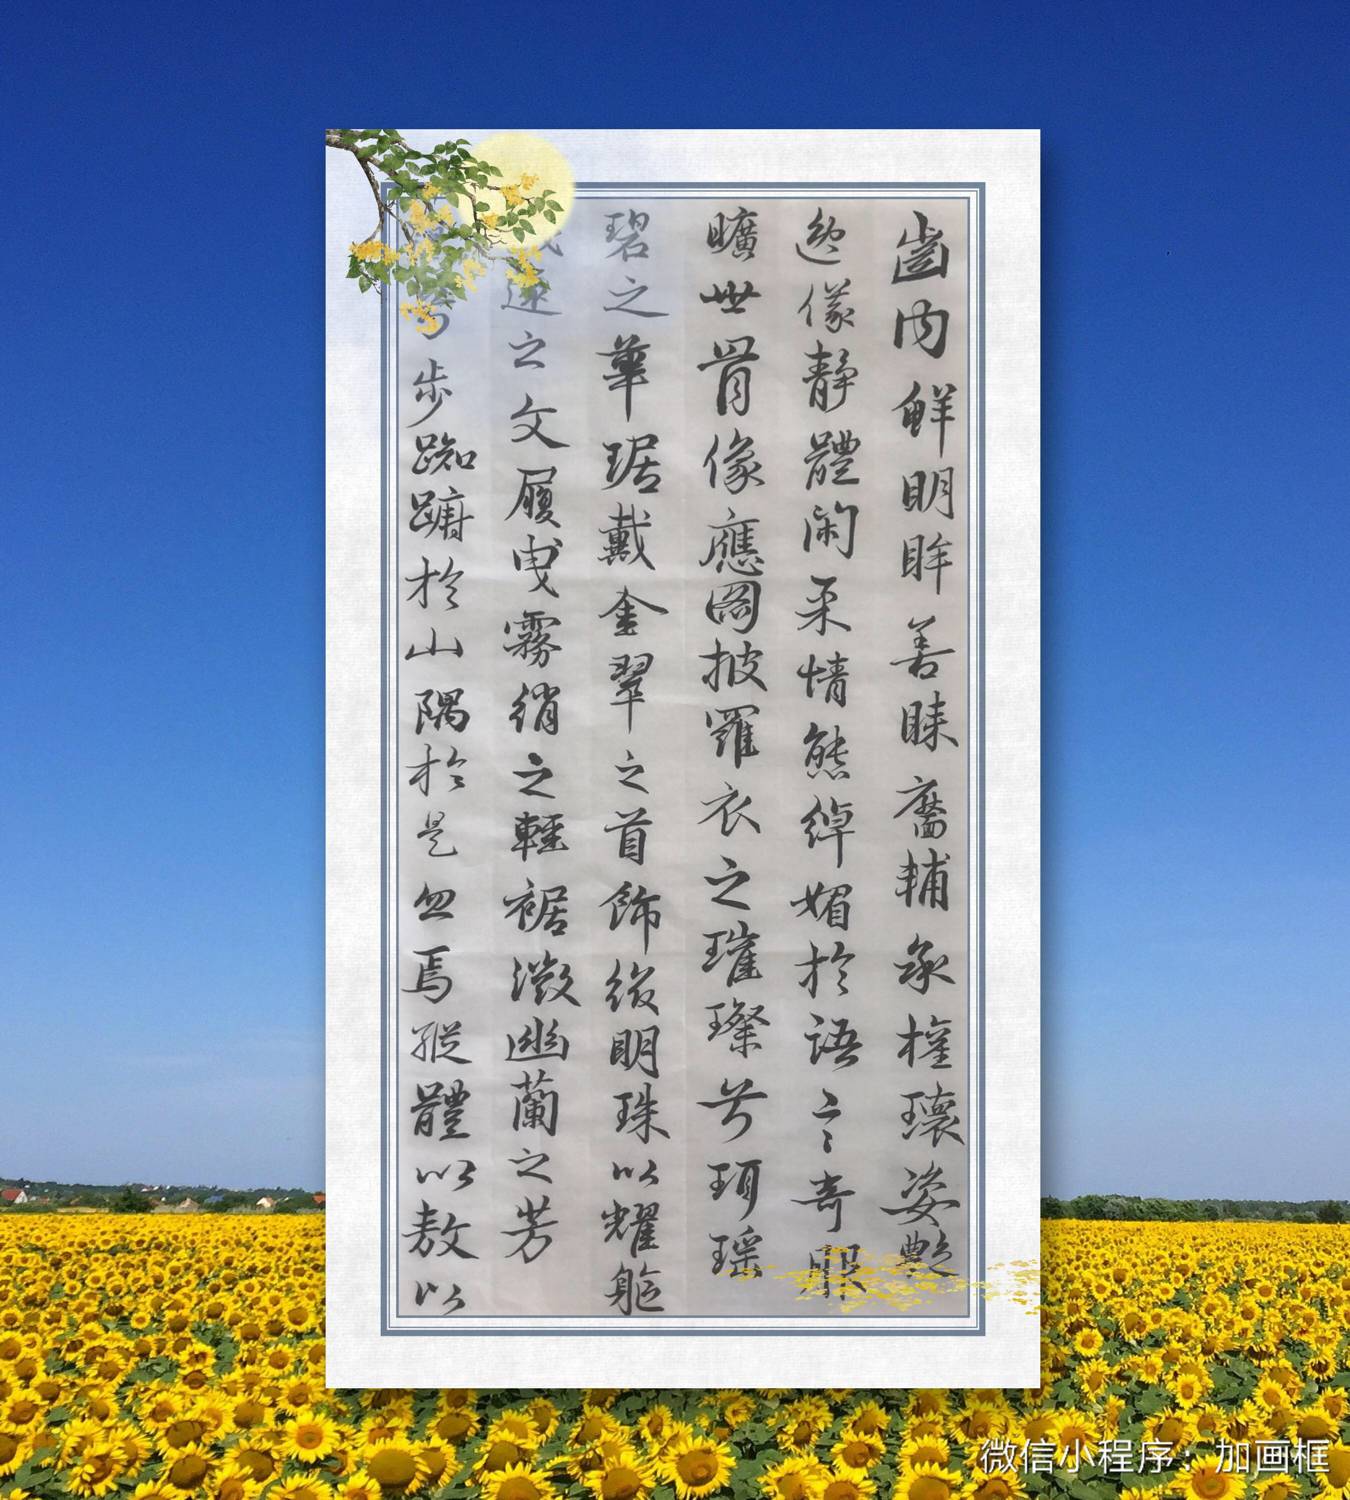 齒内鮮明眸善睐靥輔承權瓌姿艷
逸儀静體闲柔情態綽媚於語言奇服
曠世骨像應圖披羅衣之璀璨兮珥瑶
碧之華琚戴金翠之首飾缀明珠以耀躯
遠之文履曳霧綃之輕裾微幽蘭之芳
步踟蹰於山隅於是忽焉縱體以敖以
微信小程序：加画框